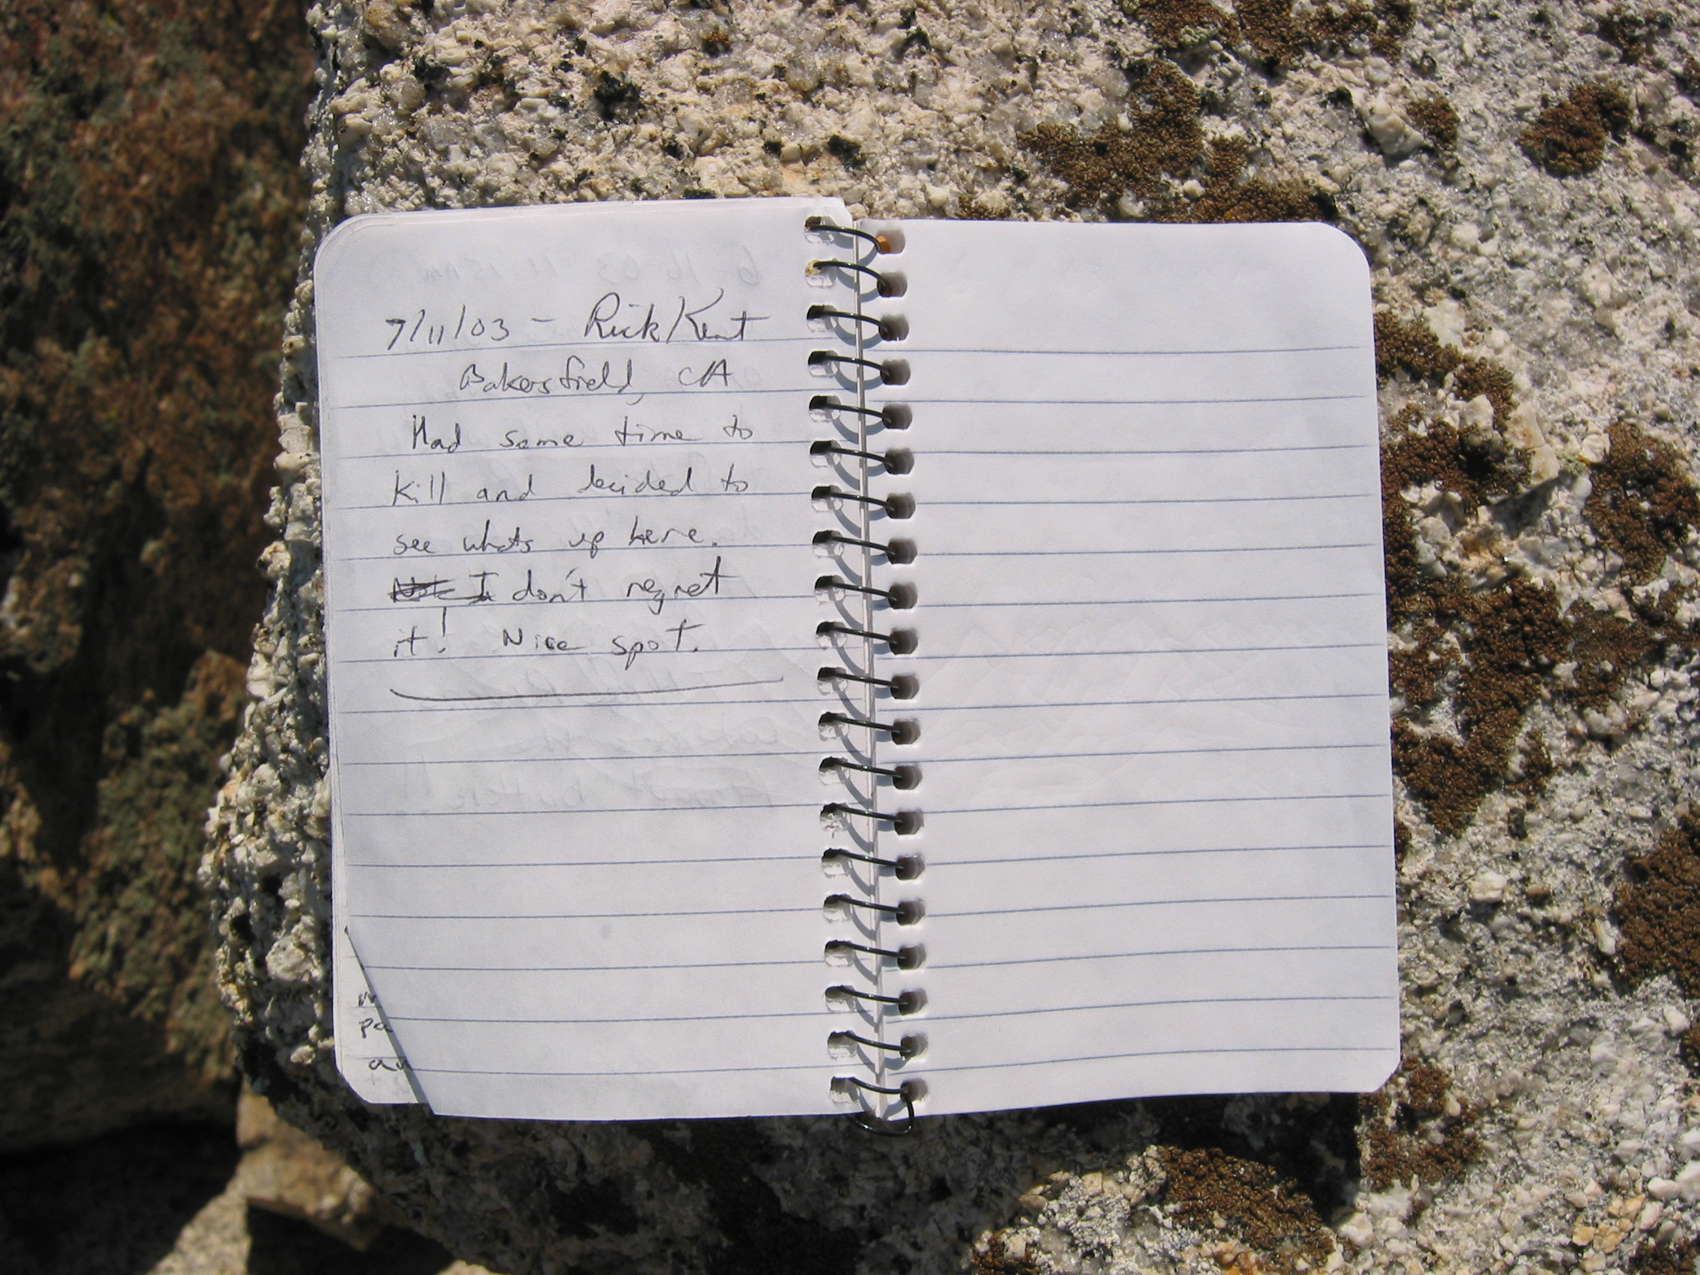 7/11/03 - Rick Kent
Bakersfield, CA
Had some time to
kill and decided to
see whats up here.
I don't regret
it! Nice spot.